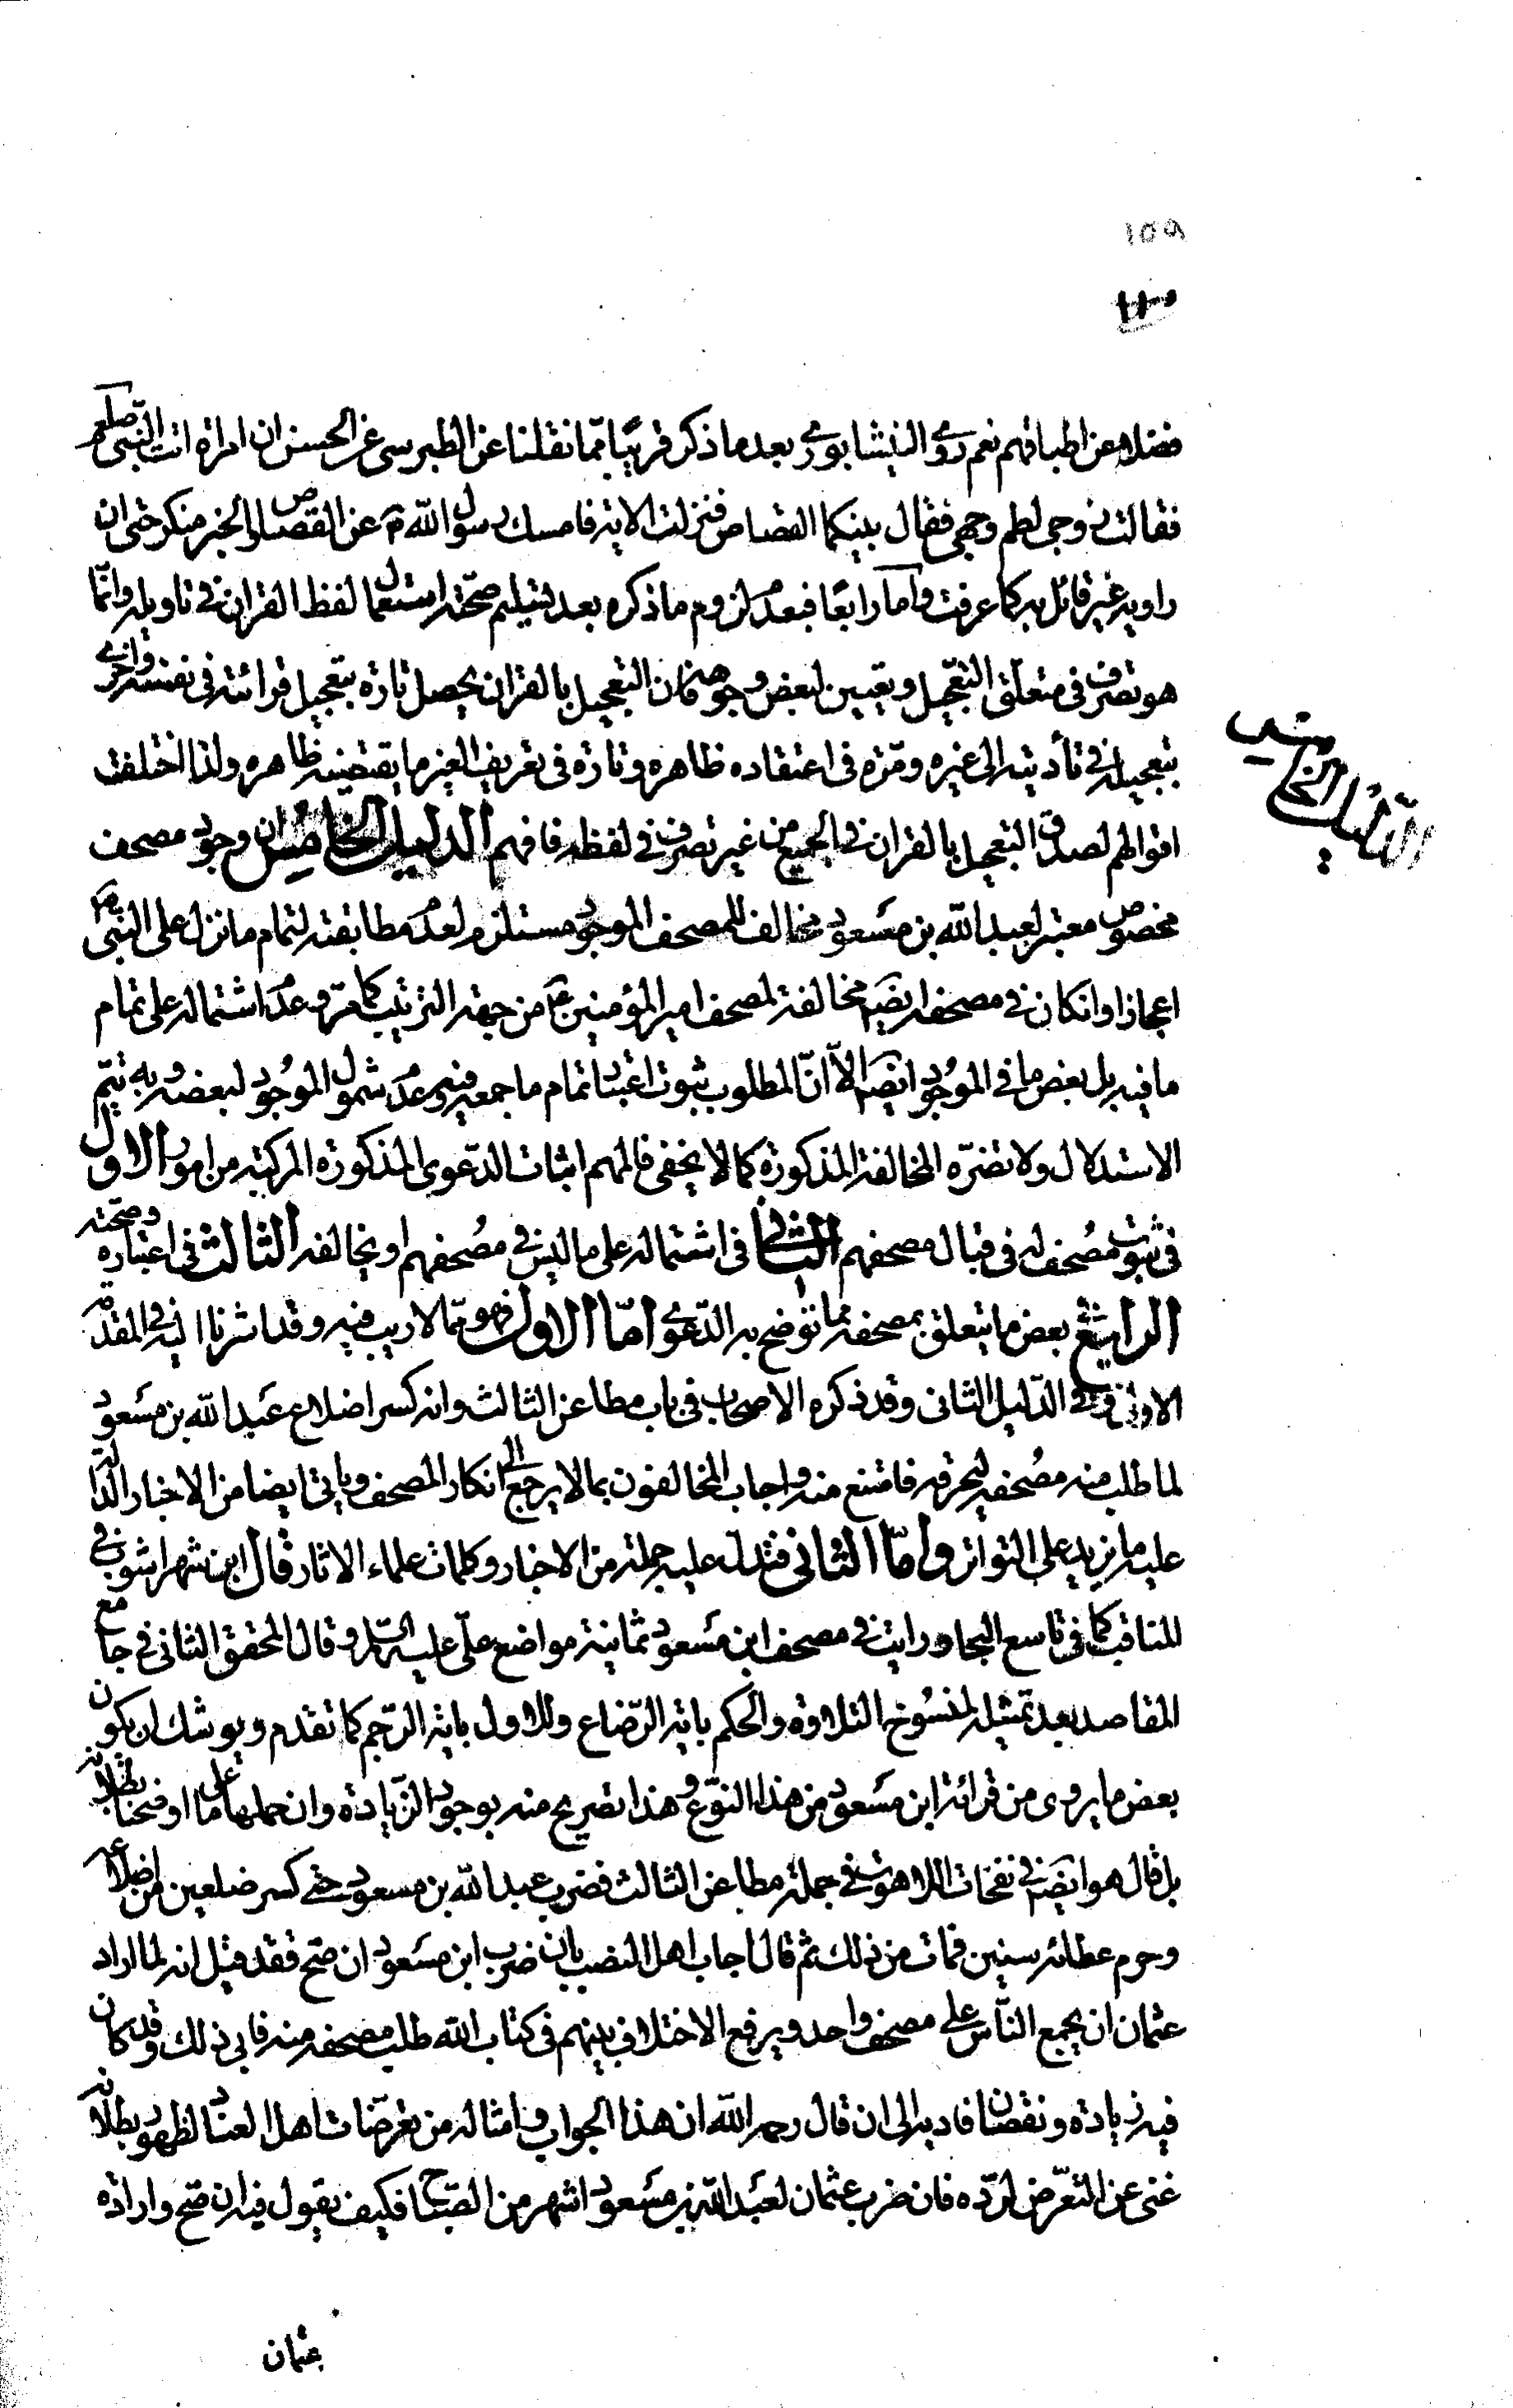 ١٥٩
فضلا عن اطباقهم نعم روى النيشابورى بعد ما ذكر قريبًا ممّا نقلنا عن الطبرسى عن الحسن ان امراة اتت النّبى صلعم
فقالت زوجى لطم وجهى فقال بينكما القصاص فنزلت الاية فامسك رسول الله ص عن القصاص والخبر منكر حتى ان
راويه غير قائل به كما عرفت وامّا رابعًا فبعدم لزوم ما ذكره بعد تسليم صحّته استعمال لفظ القران فى تاويله وانّما
هو تصرف فى متعلّق التعجيل وتعيين لبعض وجوهه فان التعجيل بالقران يحصل تارة بتعجيل قرائته فى نفسه واخرى
بتعجيله فى تأديته الى غيره ومرّة فى اعتقاده ظاهره وتارة فى تعريف الغير ما يقتضيه ظاهره ولذا اختلفت
اقوالهم لصدق التعجيل بالقران فى الجميع من غير تصرف فى لفظه فافهم الدليل الخامس ان وجود مصحف
الدّليل الخامس
مخصوص معتبر لعبد الله بن مسعود مخالف للمصحف الموجود مستلزم لعدم مطابقته لتمام ما نزل على النبى ص
اعجازا وان كان فى مصحفه ايضا مخالفة لمصحف امير المؤمنين ع من جهة الترتيب كما مر وعدم اشتماله على تمام
ما فيه بل بعض ما فى الموجود ايضا الّا انّ المطلوب ثبوت اعتبار تمام ما جمعه فيه وعدم شمول الموجود لبعضه وبه يتمّ
الاستدلال ولا تضرّه المخالفة المذكورة كما لا يخفى فالمهم اثبات الدعوى المذكورة المركبة من امور الاول
فى ثبوت مصحف له فى قبال مصحفهم الثانى فى اشتماله على ما ليس فى مصحفهم او يخالفه الثالث فى اعتباره وصحّته
الرابع بعض ما يتعلق بمصحفه مما توضح به الدّعوى امّا الاول فهو ممّا لا ريب فيه وقد اشرنا اليه فى المقدمة
الاولى وفى الدّليل الثانى وقد ذكره الاصحاب فى باب مطاعن الثالث وانه كسر اضلاع عبد الله بن مسعود
لما طلب منه مصحفه ليحرقه فامتنع منه واجاب المخالفون بما لا يرجع الى انكار المصحف وياتى ايضا من الاخبار الدّالة
عليه ما يزيد على التواتر وامّا الثانى فتدل عليه جملة من الاخبار وكلمات علماء الاثار قال ابن شهراشوب فى
المناقب كما فى تاسع البحار ورايت فى مصحف ابن مسعود ثمانية مواضع على عليه السّلم وقال المحقق الثانى فى جامع
المقاصد بعد تمثيله لمنسوخ التلاوة والحكم باية الرّضاع وللاول باية الرّجم كما تقدم ويوشك ان يكون
بعض ما يروى من قرائة ابن مسعود من هذا النوّع وهذا تصريح منه بوجود الزّيادة وان حملها على ما اوضحنا بطلانه
بل قال هو ايضا فى نفحات اللاهوت فى جملة مطاعن الثالث فضرب عبد الله بن مسعود حتى كسر ضلعين من اضلاعه
وحرم عطائه سنين فمات من ذلك ثم قال اجاب اهل النصب بان ضرب ابن مسعود ان صح فقد قيل انه لما اراد
عثمان ان يجمع النّاس على مصحف واحد ويرفع الاختلاف بينهم فى كتاب الله طلب مصحفه منه فابى ذلك وقد كان
فيه زيادة ونقصان فادبه الى ان قال رحمه الله ان هذا الجواب وامثاله من تعرّضات اهل العناد لظهور بطلانه
غنى عن التعرّض لردّه فان ضرب عثمان لعبد الله بن مسعود اشهر من الصّباح فكيف يقول فيه ان صح وارادة
عثمان